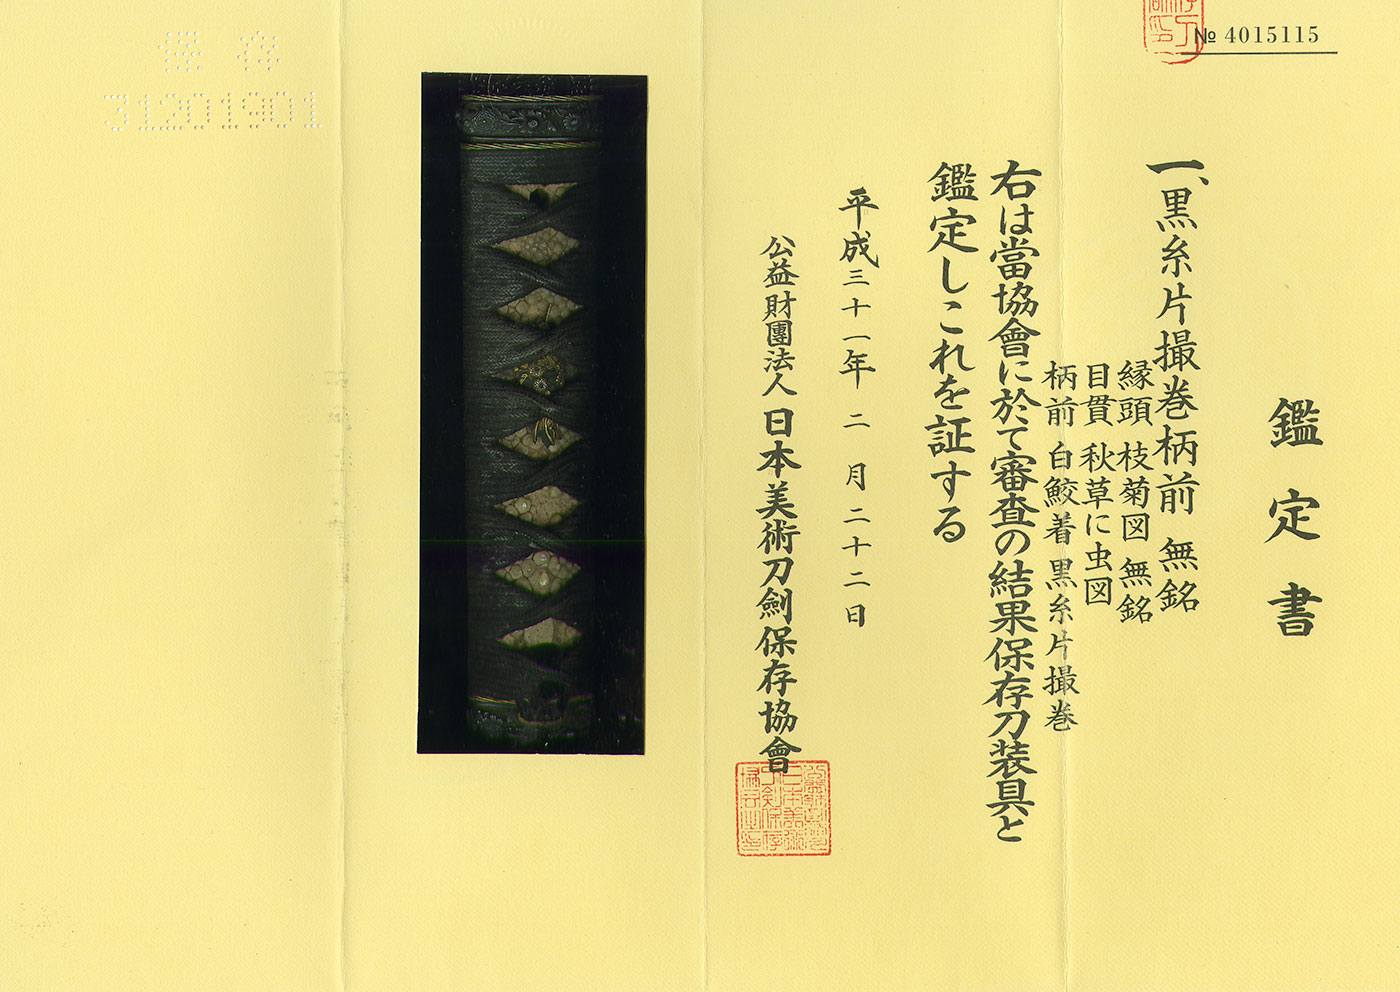 № 4015115
鑑定書
一、黒糸片撮巻柄前 無銘
縁頭 枝菊図 無銘
目貫 秋草に虫図
柄前 白鮫着 黒糸片撮巻
右は當協會に於て審査の結果保存刀装具と
鑑定しこれを証する
平成三十一年 二 月 二十二日
公益財團法人 日本美術刀劍保存協會
保存
31201901